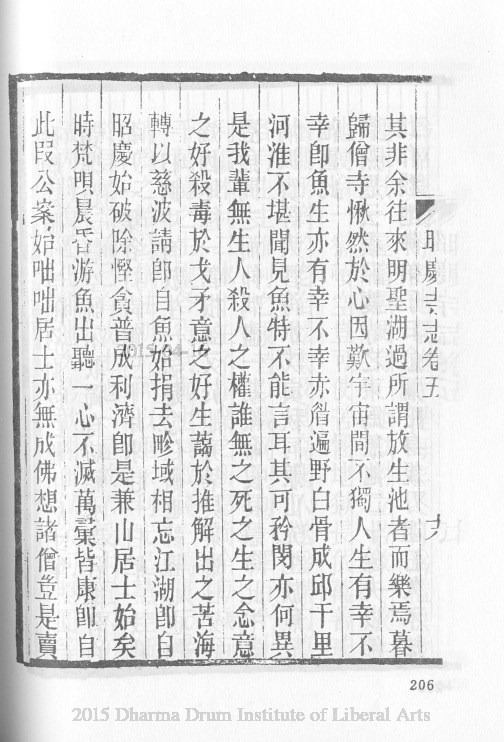 昭慶寺志卷五
十八
其非余往來明聖湖過所謂放生池者而樂焉暮
歸僧寺愀然於心因歎宇宙間不獨人生有幸不
幸卽魚生亦有幸不幸亦㫺遍野白骨成邱千里
河淮不堪聞見魚特不能言耳其可矜閔亦何異
是我輩無生人殺人之權誰無之死之生之念意
之好殺毒於戈矛意之好生藹於推解出之苦海
轉以慈波請卽自魚始捐去畛域相忘江湖卽自
昭慶始破除慳貪普成利濟卽是兼山居士始矣
時梵唄晨昏游魚出聽一心不滅萬彙皆康卽自
此叚公案始咄咄居士亦無成佛想諸僧豈是賣
206
2015 Dharma Drum Institute of Liberal Arts